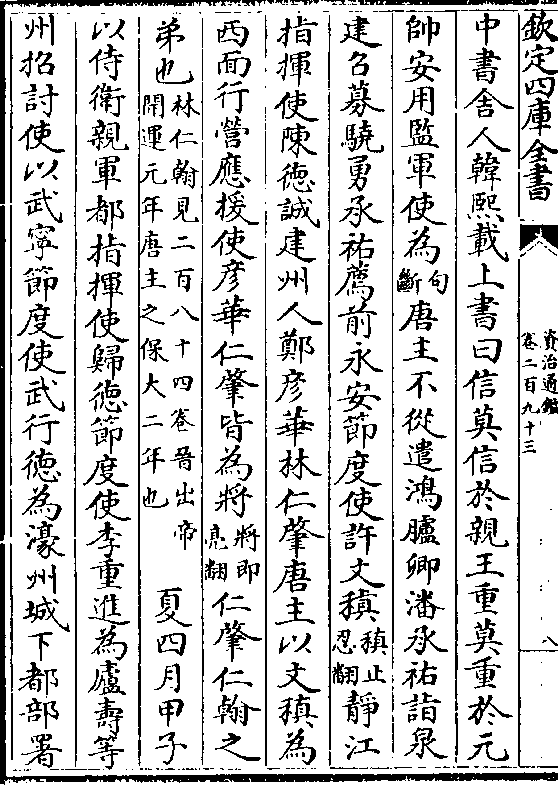 欽定四庫全書
資治通鑑
卷二百九十三
八
中書舍人韓熙載上書曰信莫信於親王重莫重於元
帥安用監軍使為句斷唐主不從遣鴻臚卿潘承祐詣泉
建召募驍勇承祐薦前永安節度使許文稹稹止忍翻靜江
指揮使陳德誠建州人鄭彦華林仁肇唐主以文稹為
西面行營應援使彦華仁肇皆為將將即亮翻仁肇仁翰之
弟也林仁翰見二百八十四卷晉出帝開運元年唐主之保大二年也 夏四月甲子
以侍衛親軍都指揮使歸德節度使李重進為廬夀等
州招討使以武寧節度使武行德為濠州城下都部署